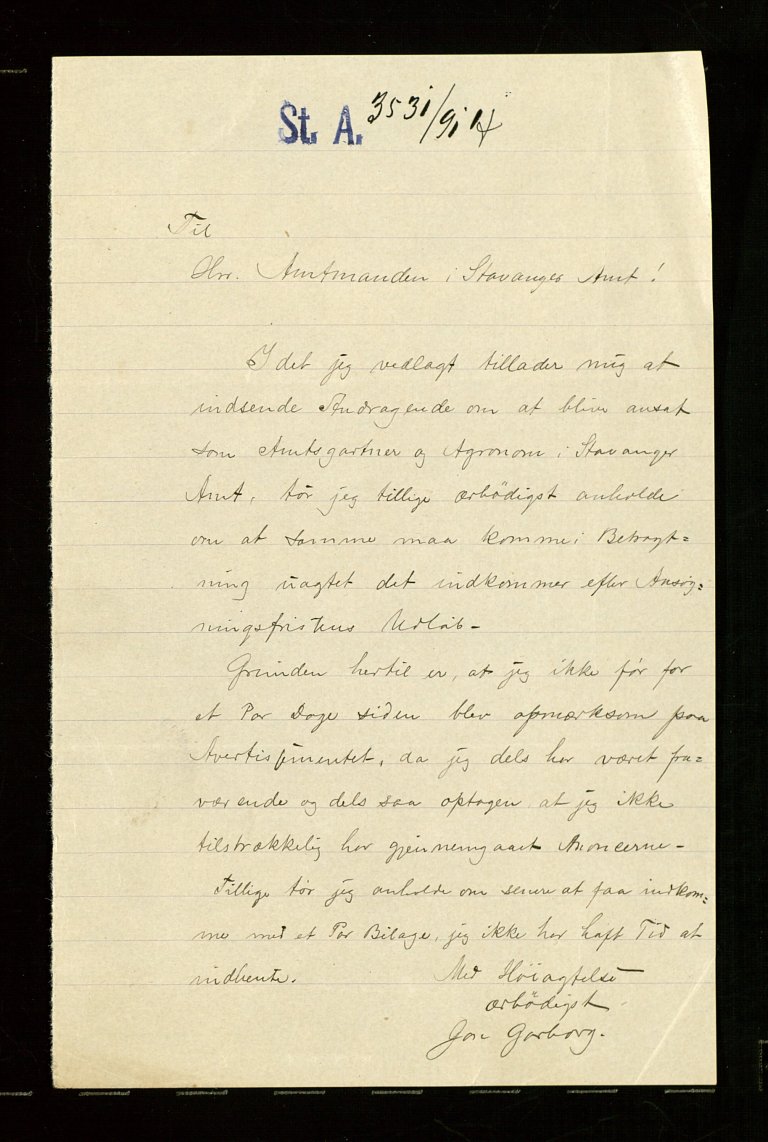 St. A. 3531/914
Til
Hrr. Amtmanden i Stavanger Amt!
Idet jeg vedlagt tillader mig at
indsende Andragende om at blive ansat
som Amtsgartner og Agronom i Stavanger
Amt, tör jeg tillige ærbödigst anholde
om at samme maa komme i Betragt=
ning uagtet det indkommer efter Ansög=
ningsfristens Udløb-
Grunden hertil er, at jeg ikke før for
et Par Dage siden blev opmærksom paa
Avertissementet, da jeg dels har været fra=
værende og dels saa optagen at jeg ikke
tilstrækkelig har gjennemgaaet Anoncerne-
Tillige tör jeg anholde om senere at faa indkom=
me med et Par Bilage, jeg ikke har haft Tid at
indhente.
Med Höiagtelse
ærbödigst
Jon Garborg.